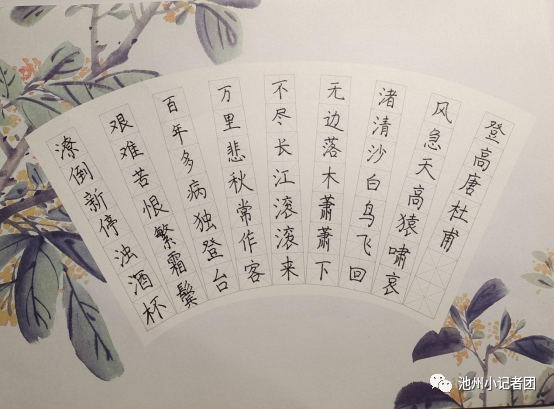 登高唐杜甫
风急天高猿啸哀
渚清沙白鸟飞回
无边落木萧萧下
不尽长江滚滚来
万里悲秋常作客
百年多病独登台
艰难苦恨繁霜鬓
潦倒新停浊酒杯
池州小记者团